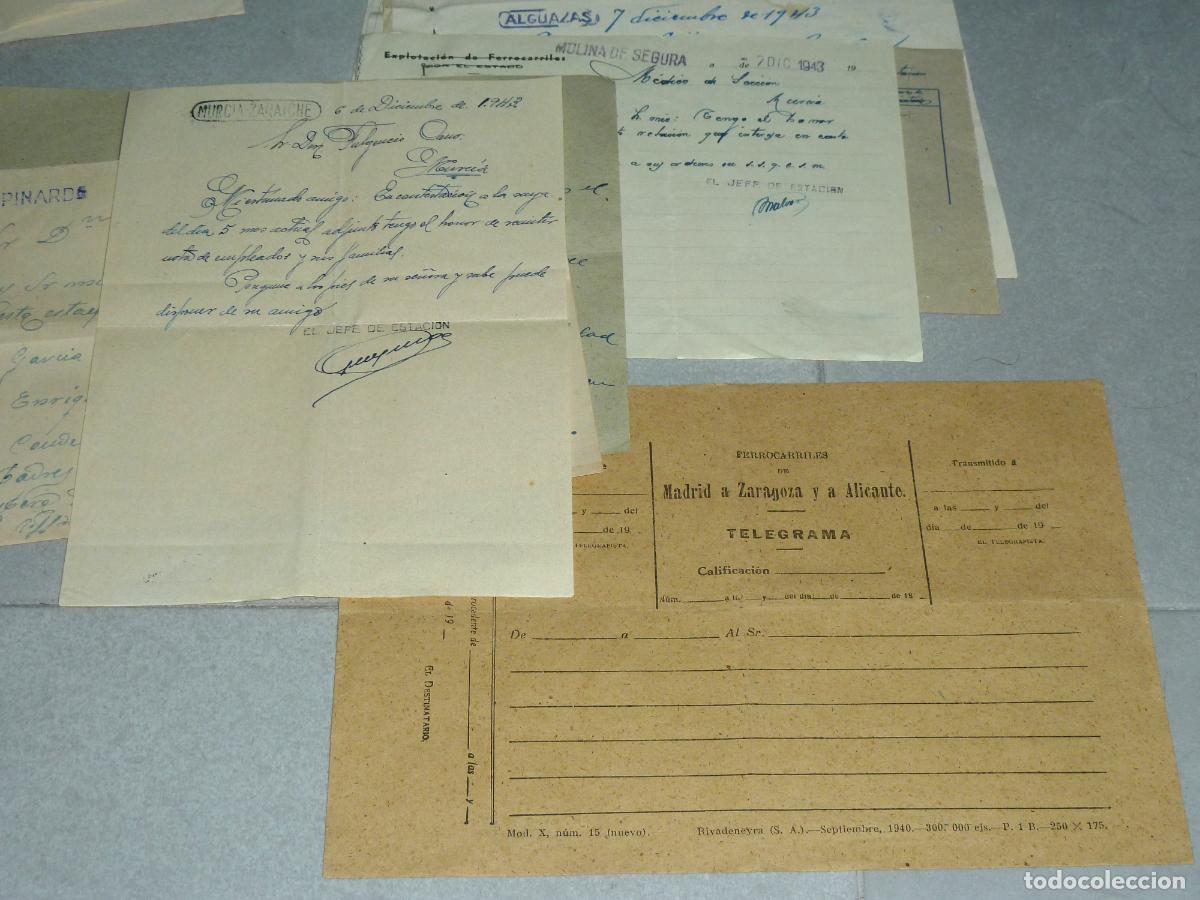 ALGUAZAS 7 diciembre de 1943
Explotación de Ferrocarriles
POR EL ESTADO
MOLINA DE SEGURA a de 7 DIC. 1943 19
Médico de Sección
Murcia
mio: Tengo el honor
relación que interesa en carta
a sus ordenes su s.s.q.e.s.m.
EL JEFE DE ESTACION
MURCIA-ZARAICHE 6 de Diciembre de 1.943
Sr Don Fulgencio Cano.
Murcia
Mi estimado amigo: En contestación a la suya
del dia 5 mes actual adjunto tengo el honor de remitir
nota de empleados y sus familias.
Pongame a los pies de su señora y sabe puede
disponer de su amigo
EL JEFE DE ESTACION
PINARDO
Sr Dn
Garcia
Enriq
Conde
Padres
FERROCARRILES
DE
Madrid a Zaragoza y a Alicante.
TELEGRAMA
Calificación
Núm. a las y del dia de de 19
y del
de 19
TELEGRAFISTA.
Transmitido á
a las y del
día de de 19
EL TELEGRAFISTA.
De a Al Sr.
procedente de a las y
de 19
EL DESTINATARIO,
Mod. X, núm. 15 (nuevo). Rivadeneyra (S. A.).—Septiembre, 1940.—300.000 ejs.—P. 1 B.—250 × 175.
todocoleccion